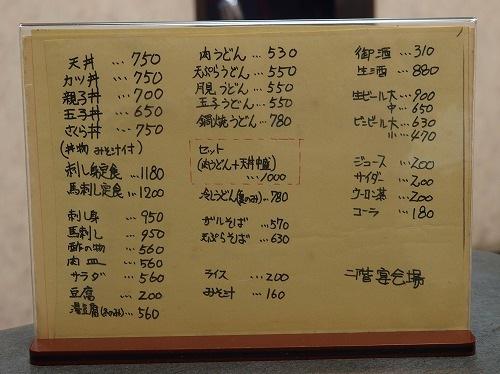 天丼 … 750
カツ丼 … 750
親子丼 … 700
玉子丼 … 650
さくら丼 … 750
(丼物 みそ汁付)
刺し身定食 … 1180
馬刺し定食 … 1200
刺し身 … 950
馬刺し … 950
酢の物 … 560
肉皿 … 560
サラダ … 560
豆腐 … 200
湯豆腐(冬のみ) … 560
肉うどん … 530
天ぷらうどん … 550
月見うどん … 550
玉子うどん … 550
鍋焼うどん … 780
セット
(肉うどん+天丼中盛)
… 1000
冷しうどん(夏のみ) … 780
ザルそば … 570
天ぷらそば … 630
ライス … 200
みそ汁 … 160
御酒 … 310
生酒 … 880
生ビール大 … 900
中 … 650
ビンビール大 … 630
小 … 470
ジュース … 200
サイダー … 200
ウーロン茶 … 200
コーラ … 180
二階宴会場